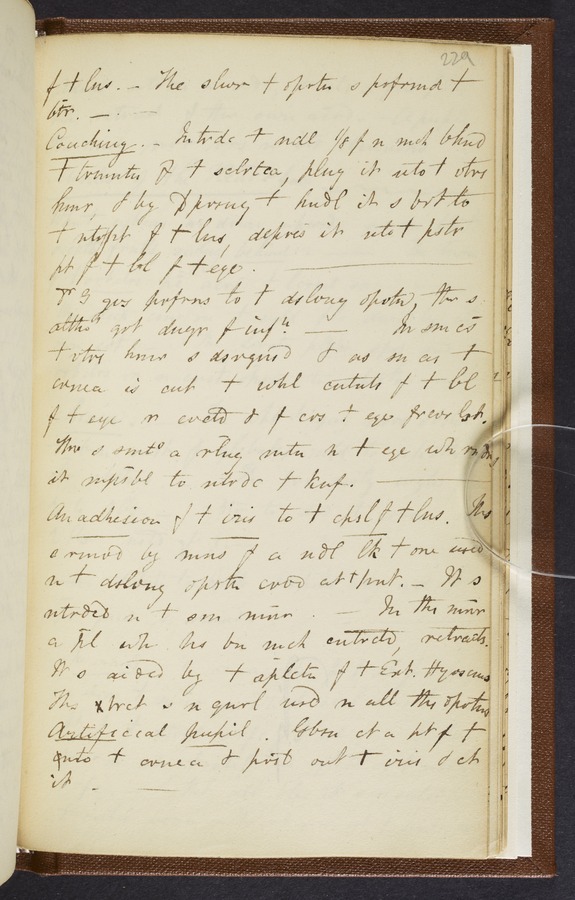 229
f + lns. – The slwr + oprtn s prfrmd +
btr. –
Couching. – Intrdc + ndl 1/8 f n nch bhnd
+ trmntn f + sclrtca, plng it nto + vtrs
hmr, & by Dprsng + hndl it s brt to
+ ntr prt f + lns, deprss it nto + pstr
prt f + bl f + eye.
Dr G gvs prfrns to + dslvng oprtn, thr s
altho grt dngr f infn. — In sm cs
+ vtrs hmr s dsrgnsd & as sn as +
crnea is cut + whl cntnts f + bl
f + eye r evctd & f crs + eye frevr lst.
Thr s smts a rlng mtn n + eye wh rndrs
it mpsbl to ntrdc + knf.
An adhesion f + iris to + cpsl f + lns. Ths
s rmvd by mns f a ndl lk + one usd
n + dslvng oprtn crvd at + pnt. – It s
ntrdcd n + sm mnr. — In ths mnr
a ppl wh hs bn mch cntrctd, retracts.
It s aided by + aplctn f + Ext. Hyoscms
Ths xtrct s n gnrl usd n all ths oprtns
Artificial pupil. Gbsn ct a prt f +
+ crnea & prsd out + iris & ct
it